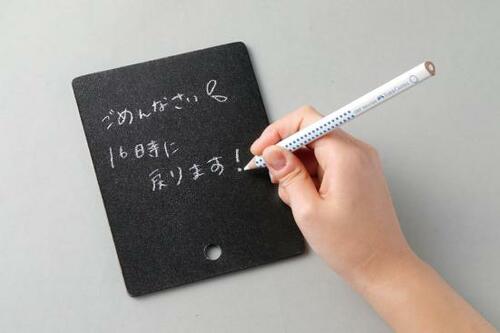 ごめんなさい
16時に
戻ります!